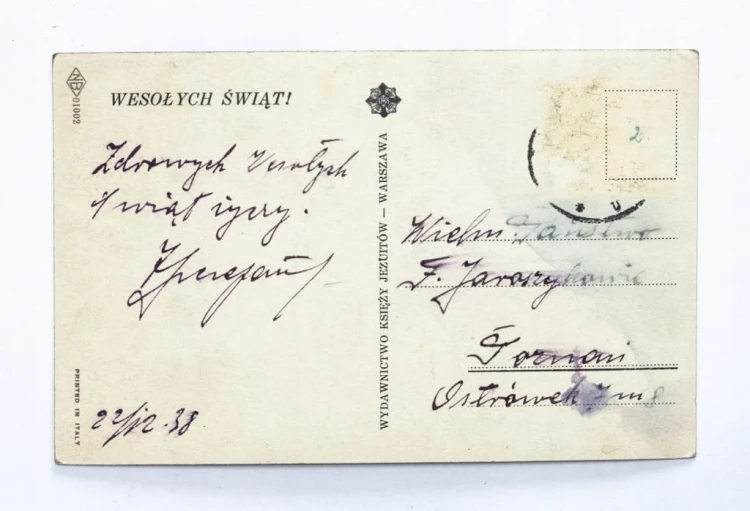 NB 01002
WESOŁYCH ŚWIĄT!
Zdrowych Wesołych
Świąt życzy.
22/12.38
PRINTED IN ITALY
WYDAWNICTWO KSIĘŻY JEZUITÓW — WARSZAWA
2
Wielm. Państwo
F. Jaroszykowie
Poznań
Ostrówek 7 m 8